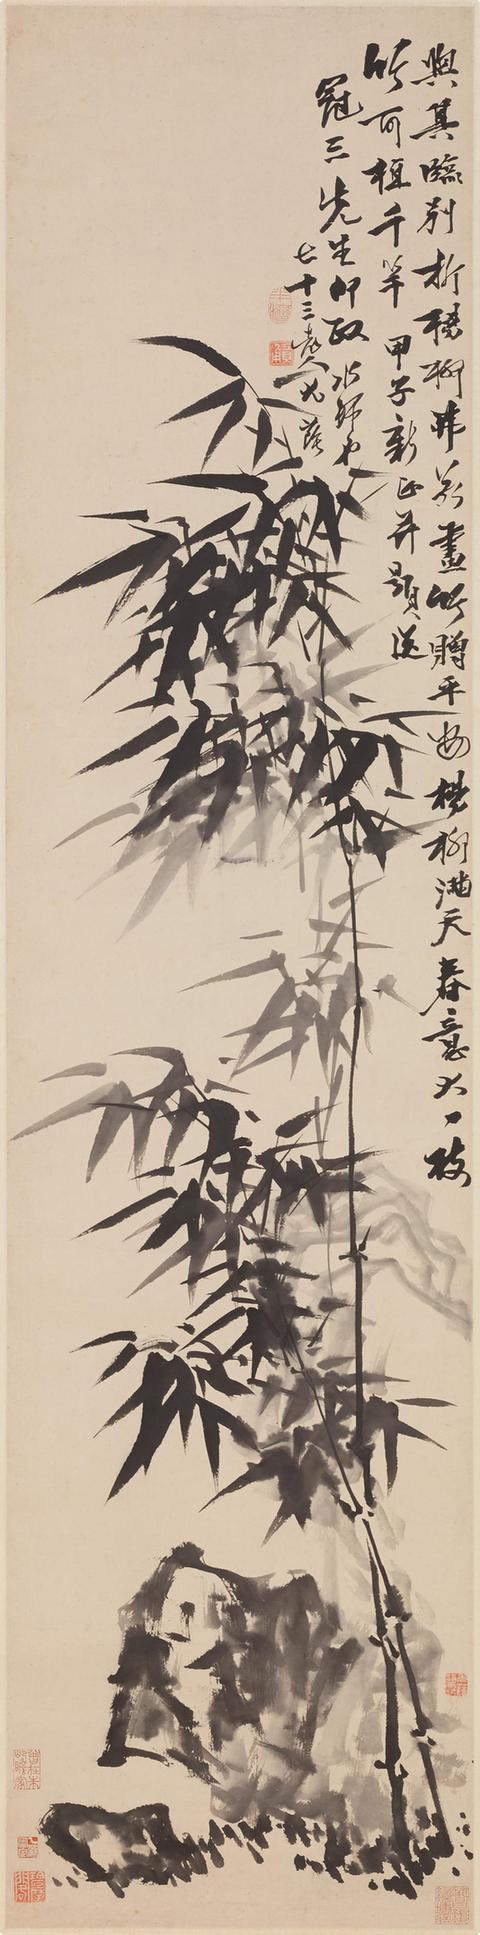 與其臨別折楊柳若畫竹贈平安楊柳滿天春意一枝
竹可植千竿 甲子新正并題送
冠三先生即政
七十三老人尤蔭